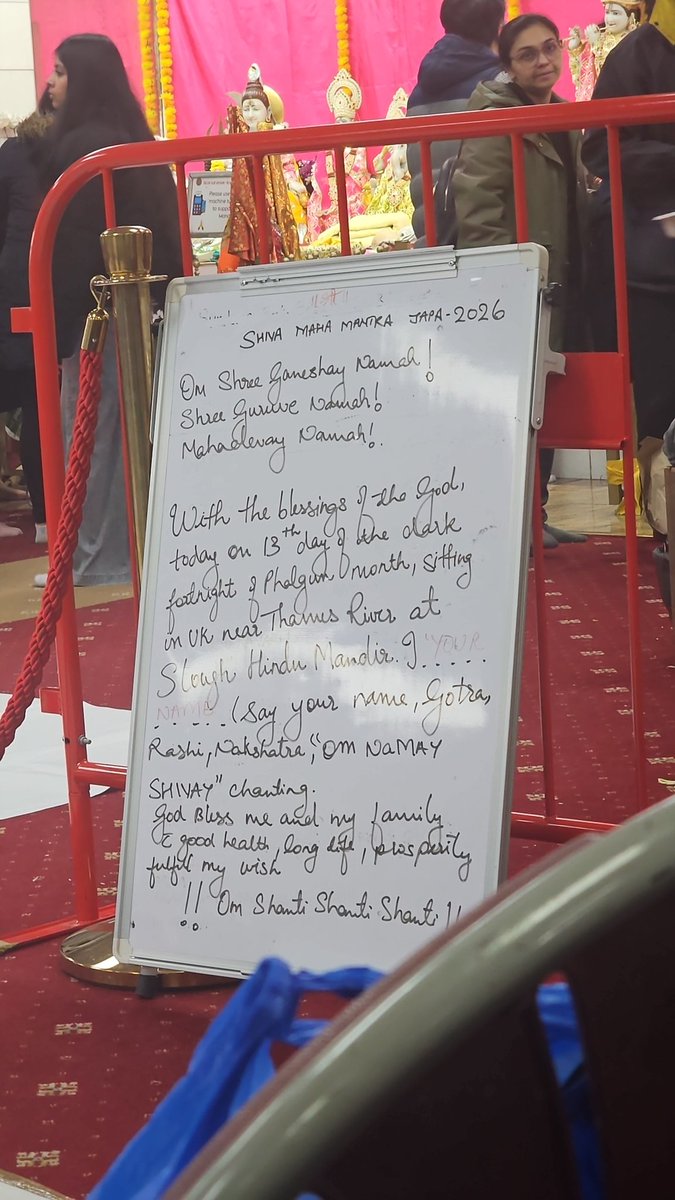 Please use
machine
to supp
Mand
॥श्री॥
SHIVA MAHA MANTRA JAPA-2026
Om Shree Ganeshay Namah!
Shree Guruve Namah!
Mahadevay Namah!.
With the blessings of the God,
today on 13th day of the dark
fortnight of Phalgun month, sitting
in UK near Thames River at
Slough Hindu Mandir. I "YOUR
NAME" ...... (Say your name, Gotra,
Rashi, Nakshatra, "OM NAMAY
SHIVAY" chanting.
God Bless me and my family
c̄ good health, long life, prosperity
fulful my wish
!! Om Shanti Shanti Shanti !!